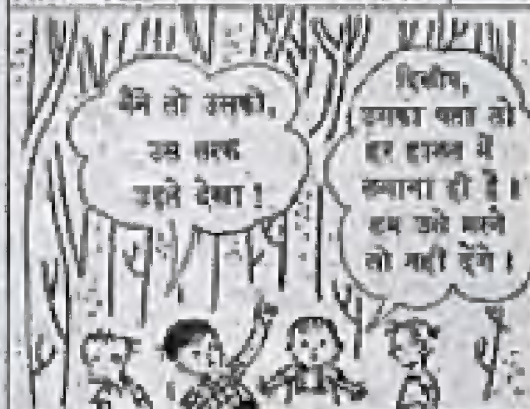 मैंने तो उसको,
उस तरफ
उड़ते देखा !
दिलीप,
उसका पता तो
हर हालत में
लगाना ही है ।
हम उसे मरने
तो नहीं देंगे ।